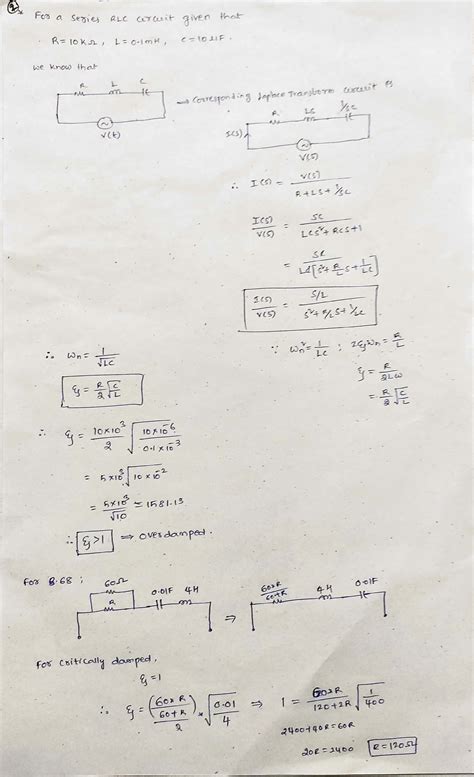 2. For a series RLC circuit given that
R=10kΩ, L=0.1mH, C=10μF.
we know that
R L C
V(t)
→ Corresponding Laplace Transform circuit is
R LS 1/SC
I(S)
V(S)
∴ I(S) = V(S) / R+LS+1/SC
I(S)/V(S) = SC / LCS²+RCS+1
= SC / LC[S²+R/L S+1/LC]
I(S)/V(S) = S/L / S²+R/L S+1/LC
∵ ωn² = 1/LC ; 2ξωn = R/L
ξ = R/2Lω
= R/2 √C/L
∴ ωn = 1/√LC
ξ = R/2 √C/L
∴ ξ = 10×10³/2 √10×10⁻⁶/0.1×10⁻³
= 5×10³ √10×10⁻²
= 5×10³/√10 = 1581.13
∴ ξ>1 ⇒ overdamped.
For B.68 :
60Ω
R 0.01F 4H
⇒
60×R/60+R 4H 0.01F
For critically damped,
ξ=1
∴ ξ = (60×R/60+R)/2 × √0.01/4 ⇒ 1 = 60×R/120+2R √1/400
2400+40R=60R
20R=2400 R=120Ω